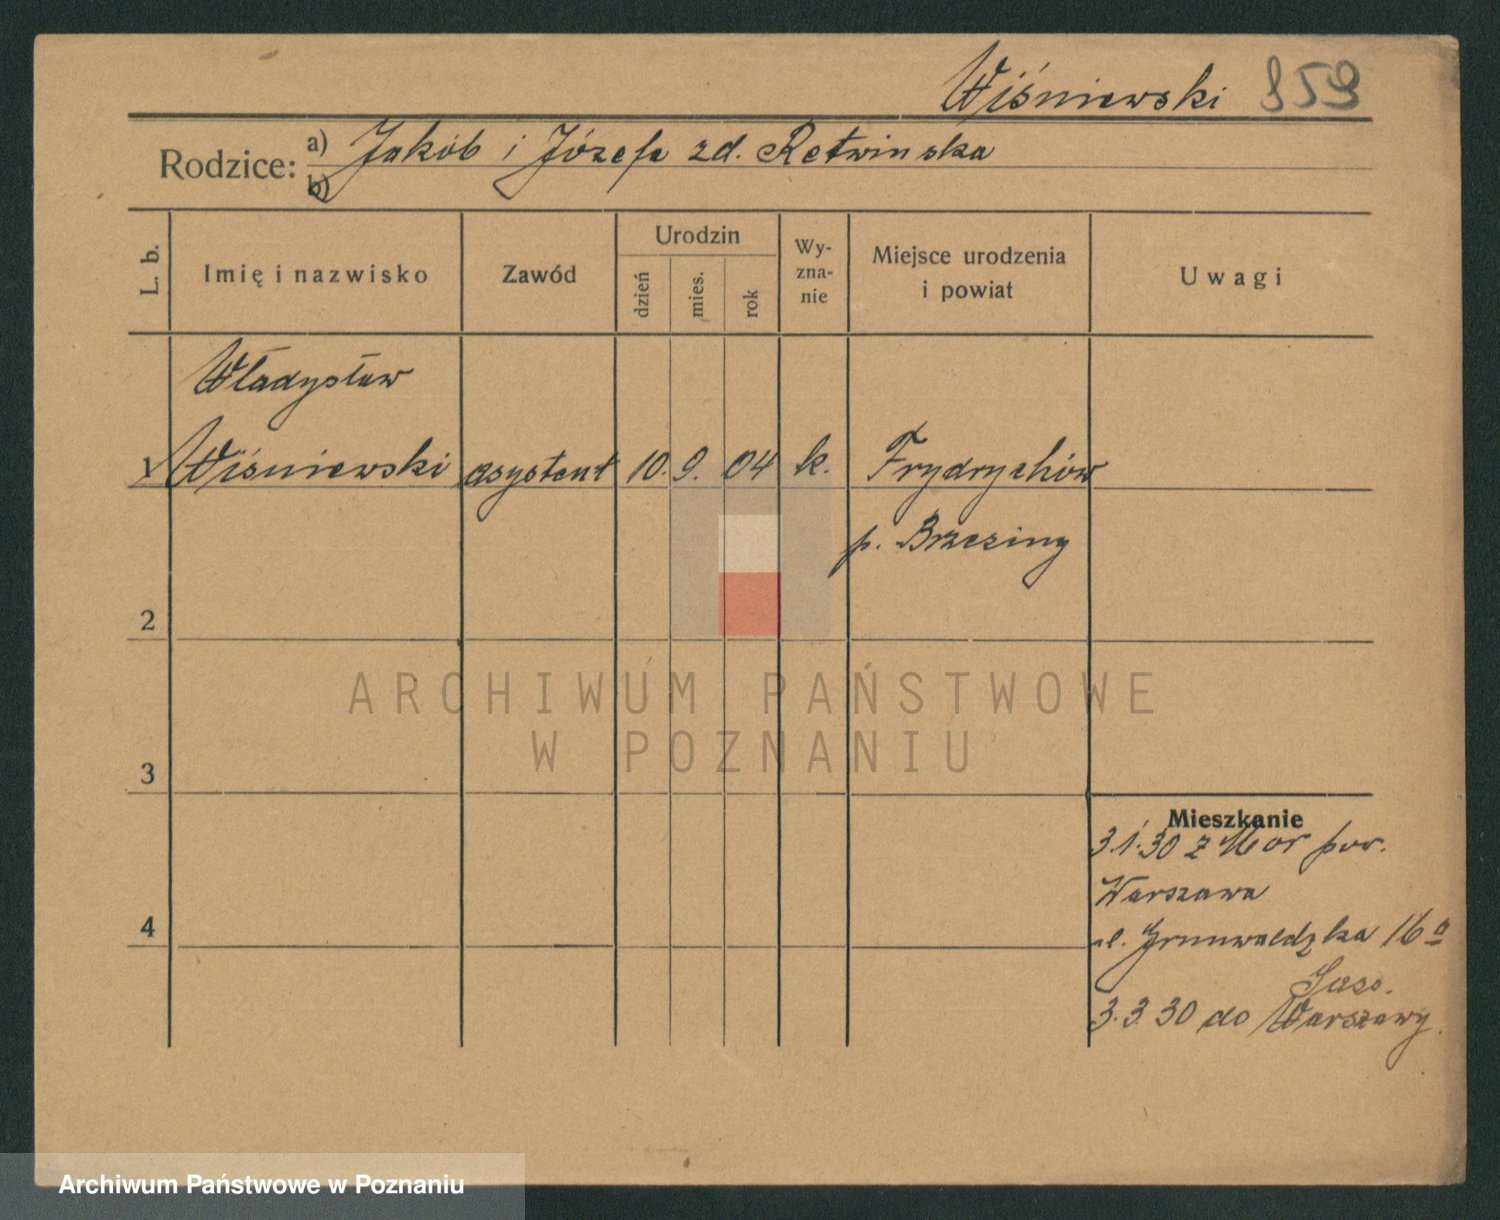 Wiśniewski 859
Rodzice: a) Jakób i Józefa zd. Retwinska
b)
L. b.
Imię i nazwisko
Zawód
Urodzin
dzień
mies.
rok
Wy-
zna-
nie
Miejsce urodzenia
i powiat
Uwagi
Władysław
1 Wiśniewski asystent 10. 9. 04 k. Frydrychów
p. Brzeziny
2
3
4
ARCHIWUM PAŃSTWOWE
W POZNANIU
Mieszkanie
3.1.30 z Mor pow.
Warszawa
ul. Grunwaldzka 16a
3.3.30 do Warszawy
Archiwum Państwowe w Poznaniu